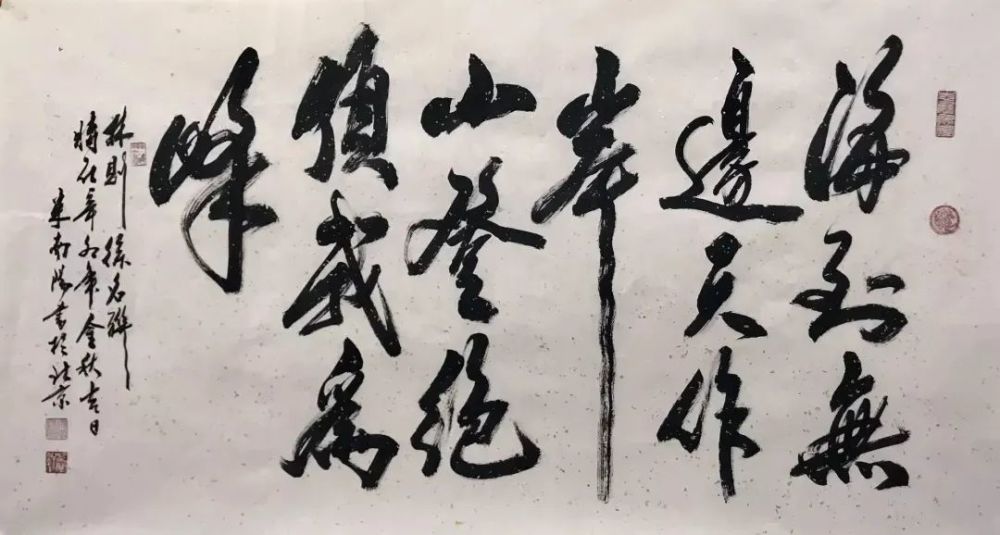 海到無
邊天作
岸
山登絕
頂我為
峰
林則徐名聯
時在辛丑年金秋吉日
東南陽書於北京